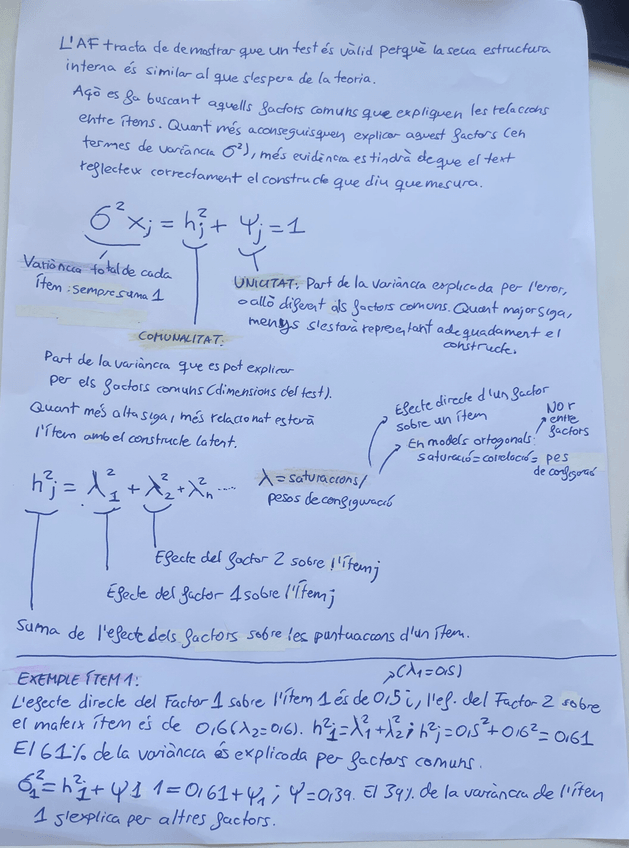 L'AF tracta de demostrar que un test és vàlid perquè la seua estructura
interna és similar al que s'espera de la teoria.
Açò es fa buscant aquells factors comuns que expliquen les relacions
entre ítems. Quant més aconseguisquen explicar aquest factors (en
termes de variància σ²), més evidència es tindrà de que el text
reflecteix correctament el constructe que diu que mesura.
σ²xj = h²j + ψj = 1
Variància total de cada
ítem: sempre suma 1
UNICITAT: Part de la variància explicada per l'error,
o allò diferent als factors comuns. Quant major siga,
menys s'estarà representant adequadament el
constructe.
COMUNALITAT:
Part de la variància que es pot explicar
per els factors comuns (dimensions del test).
Quant més alta siga, més relacionat estarà
l'ítem amb el constructe latent.
Efecte directe d'un factor
sobre un ítem
En models ortogonals:
saturació = correlació = pes
de configuració
NO r
entre
factors
h²j = λ²1 + λ²2 + λ²n ....
λ = saturacions/
pesos de configuració
Efecte del factor 2 sobre l'ítem j
Efecte del factor 1 sobre l'ítem j
Suma de l'efecte dels factors sobre les puntuacions d'un ítem.
EXEMPLE ÍTEM 1:
(λ1=0,5)
L'efecte directe del Factor 1 sobre l'ítem 1 és de 0,5 i, l'ef. del Factor 2 sobre
el mateix ítem és de 0,6 (λ2=0,6). h²1 = λ²1 + λ²2 ; h²j = 0,5² + 0,6² = 0,61
El 61% de la variància és explicada per factors comuns.
σ²1 = h²1 + ψ1 1 = 0,61 + ψ1 ; ψ = 0,39. El 39% de la variància de l'ítem
1 s'explica per altres factors.